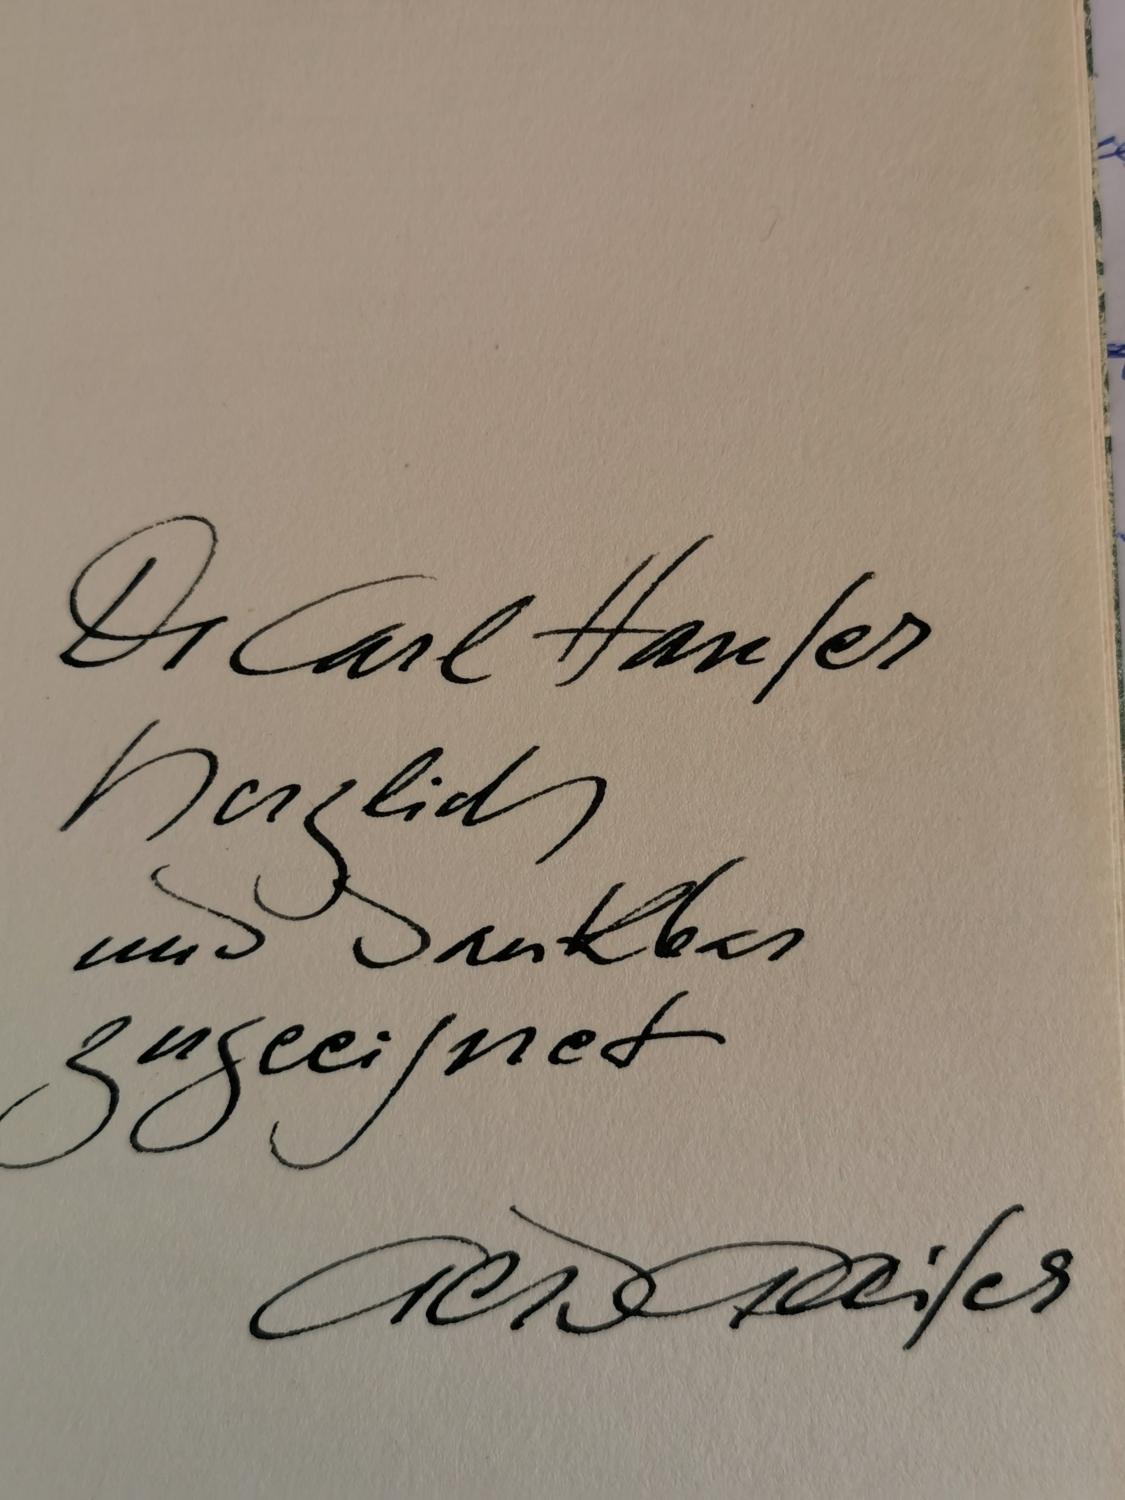 Dr Carl Hanser
herzlich
und dankbar
zugeeignet